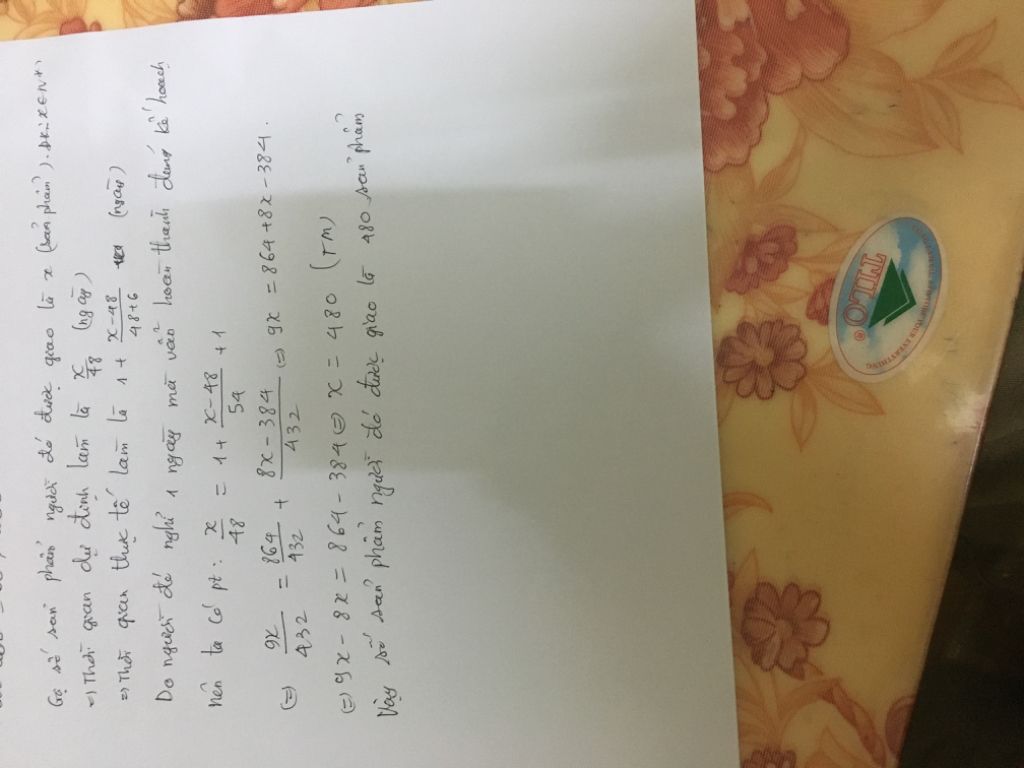 Gọi số sản phẩm người đó được giao là x (sản phẩm). đk: x∈N*)
=) Thời gian dự định làm là x/48 (ngày)
=) Thời gian thực tế làm là 1 + (x-48)/(48+6) (ngày)
Do người đó nghỉ 1 ngày mà vẫn hoàn thành đúng kế hoạch
nên ta có pt: x/48 = 1 + (x-48)/54 + 1
(=) 9x/432 = 864/432 + (8x-384)/432 (=) 9x = 864+8x-384.
(=) 9x - 8x = 864 - 384 (=) x = 480 (TM)
Vậy số sản phẩm người đó được giao là 480 sản phẩm
TILO®